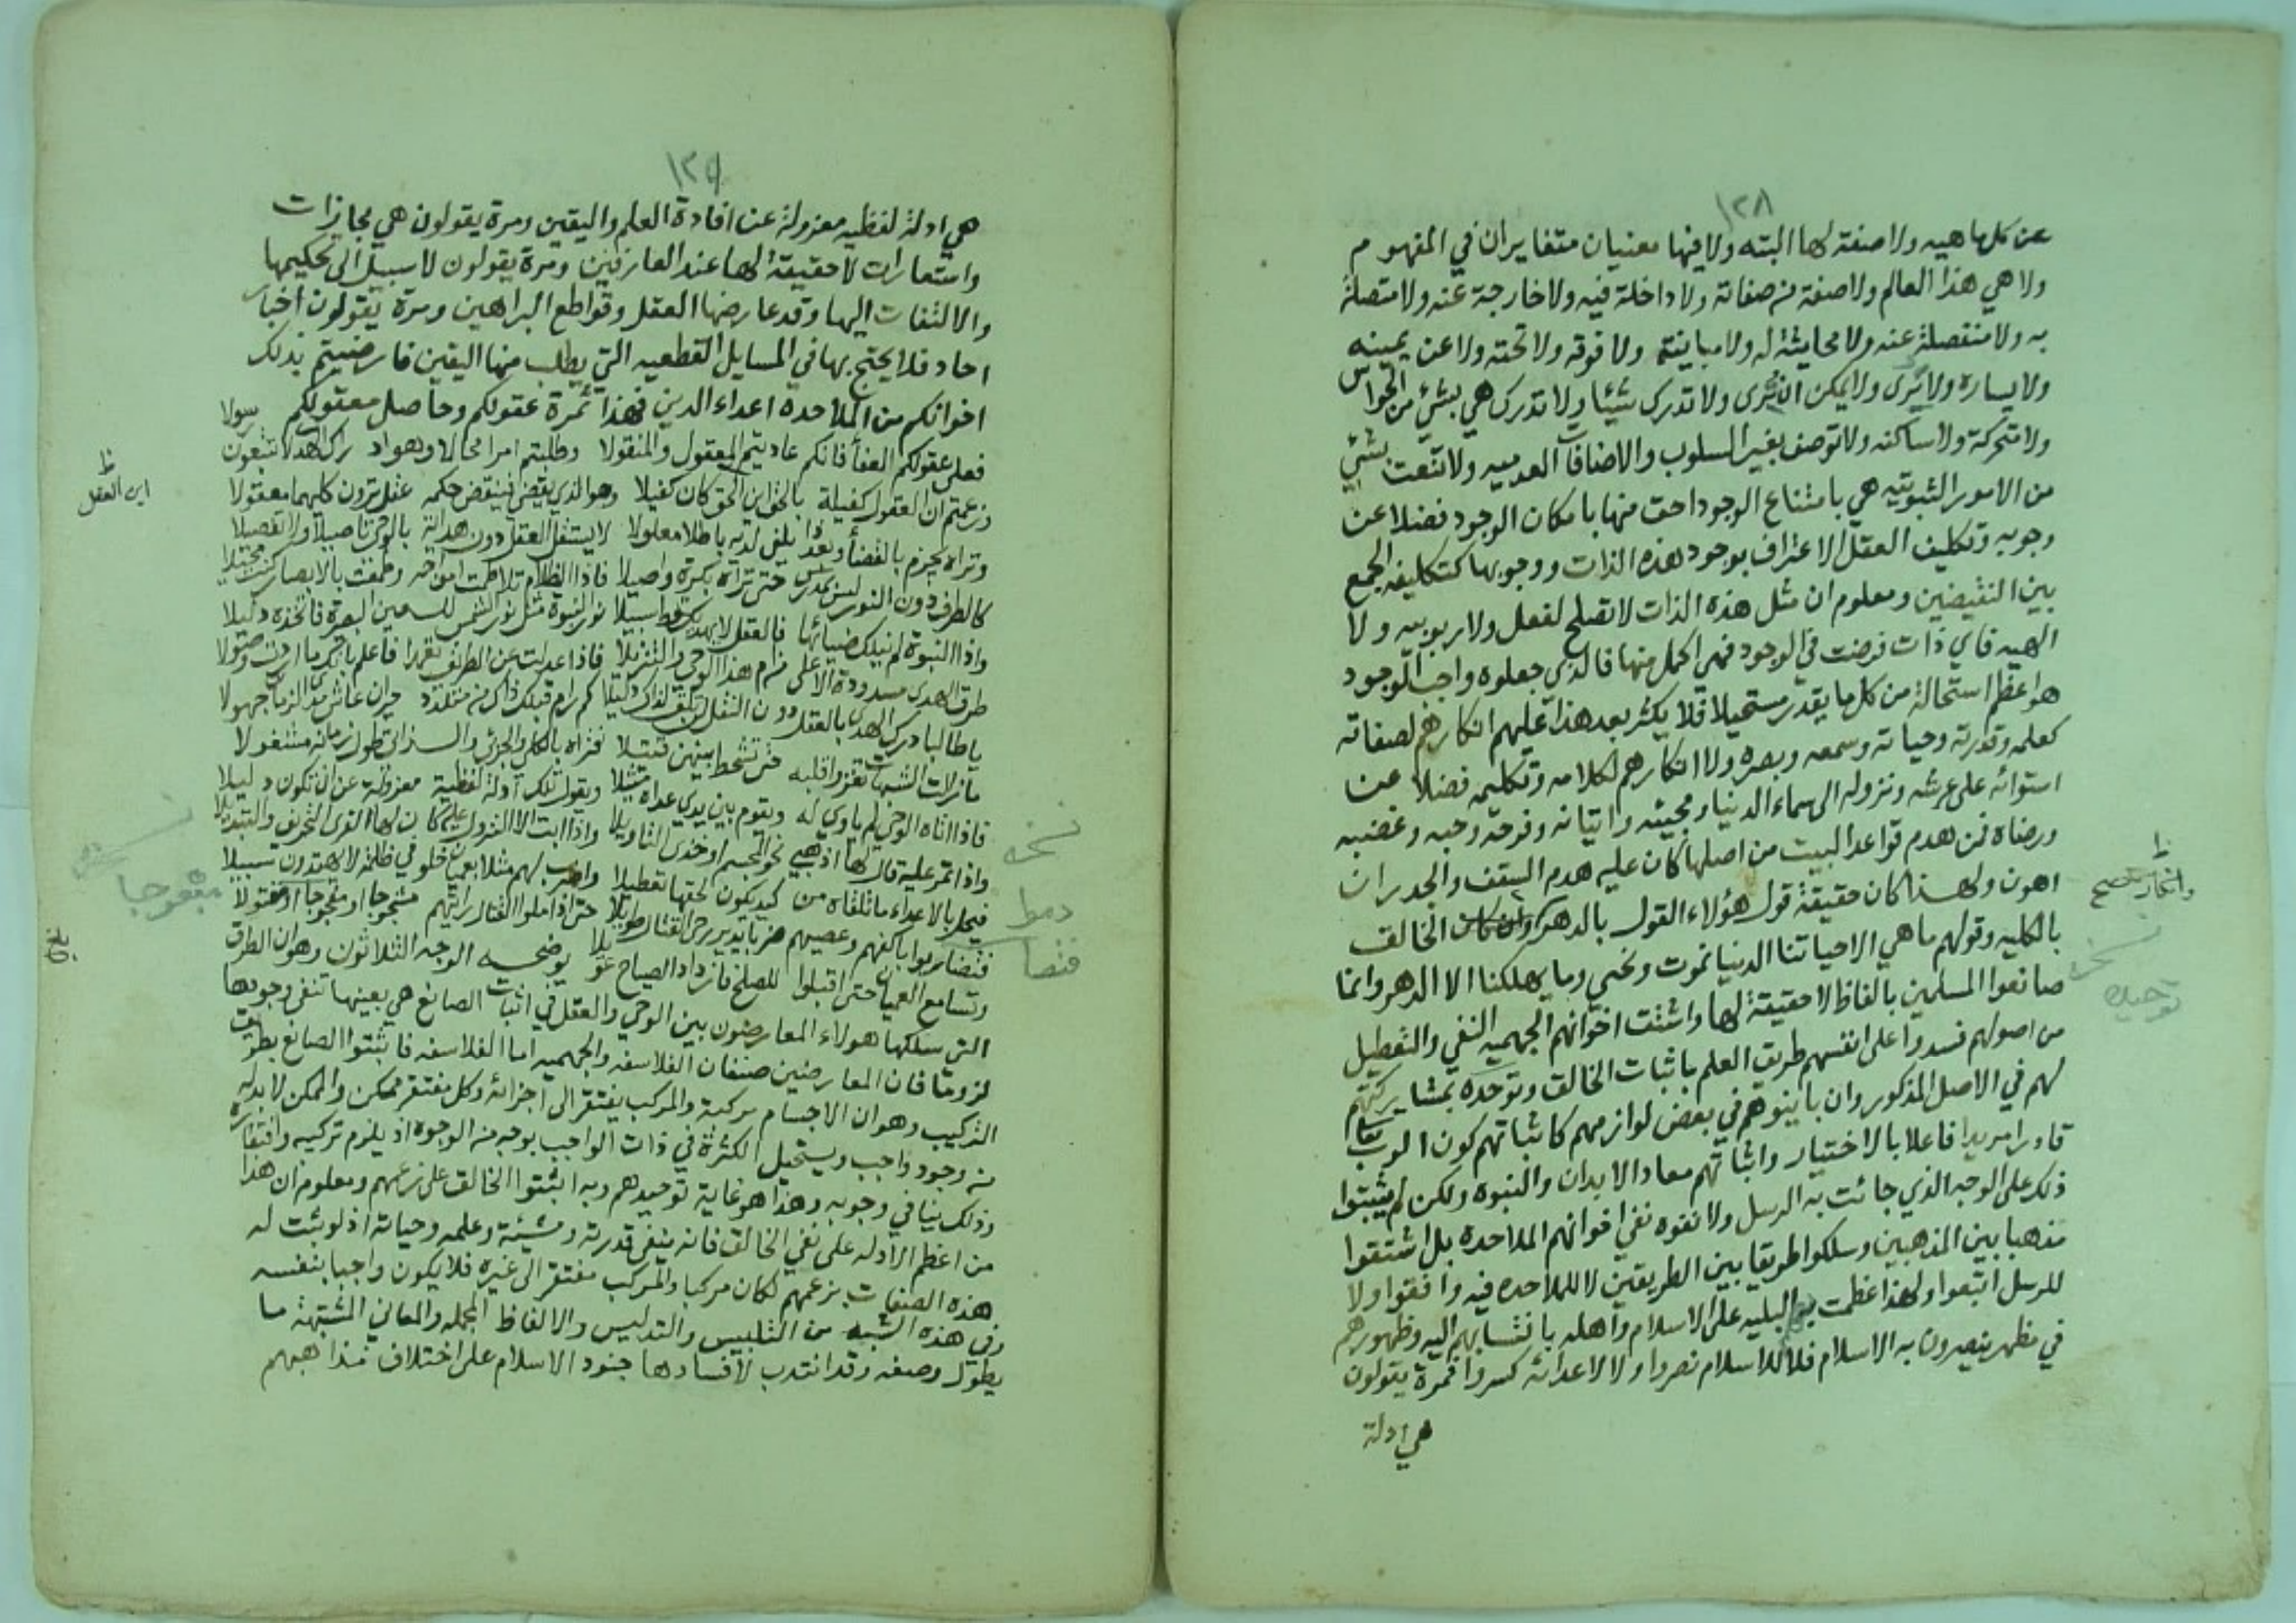 ١٣٨
عن كل ماهيه ولا صفة لها البته ولا فيها معنيان متغايران في المفهوم
ولا هي هذا العالم ولا صفة من صفاته ولا داخلة فيه ولا خارجة عنه ولا متصلة
به ولا منفصلة عنه ولا محايثة له ولا مباينة ولا فوقه ولا تحته ولا عن يمينه
ولا يساره ولا يُرى ولا يمكن ان تُرى ولا تدرك شيئا ولا تدرك هي بشئ من الحواس
ولا متحركة ولا ساكنه ولا توصف بغير السلوب والاضافات العدميه ولا تنعت بشئ
من الامور الثبوتيه هي بامتناع الوجود احق منها بامكان الوجود فضلا عن
وجوبه وتكليف العقل الاعتراف بوجود هذه الذات ووجوبها كتكليفه الجمع
بين النقيضين ومعلوم ان مثل هذه الذات لا تصلح لفعل ولا ربوبيه ولا
الهيه فاي ذات فرضت في الوجود فهي اكمل منها فالذي جعلوه واجب الوجود
هو اعظم استحالة من كل ما يقدر مستحيلا فلا يكثر بعد هذا عليهم انكارهم لصفاته
كعلمه وقدرته وحياته وسمعه وبصره ولا انكارهم لكلامه وتكليمه فضلا عن
استوائه على عرشه ونزوله الى سماء الدنيا ومجيئه واتيانه وفرحه وحبه وغضبه
ورضاه فمن هدم قواعد البيت من اصلها كان عليه هدم السقف والجدران
اهون ولهذا كان حقيقة قول هؤلاء القول بالدهر الخالق
بالكليه وقولهم ما هي الا حياتنا الدنيا نموت ونحيى وما يهلكنا الا الدهر وانما
صانعوا المسلمين بالفاظ لا حقيقة لها واشتقت اخوانهم الجهميه النفي والتعطيل
من اصولهم فسدوا على انفسهم طريق العلم باثبات الخالق وتوحده بمشاركتهم
لهم في الاصل المذكور وان باينوهم في بعض لوازمهم كاثباتهم كون الرب تعالى
قادرا مريدا فاعلا بالاختيار واثباتهم معاد الابدان والنبوه ولكن لم يثبتوا
ذلك على الوجه الذي جائت به الرسل ولا نفوه نفي اخوانهم الملاحده بل اشتقوا
مذهبا بين المذهبين وسلكوا طريقا بين الطريقين لا للملاحده فيه وافقوا ولا
للرسل اتبعوا ولهذا عظمت البليه على الاسلام واهله بانتسابهم اليه وظهورهم
في مظهر ينصرون به الاسلام فلا للاسلام نصروا ولا لاعدائه كسروا فمرة يقولون
هي ادلة
ظ
وانكار
صح
نسخه
توحيده
١٣٩
هي ادلة لفظيه معزولة عن افادة العلم واليقين ومرة يقولون هي مجازات
واستعارات لا حقيقة لها عند العارفين ومرة يقولون لا سبيل الى تحكيمها
والالتفات اليها وقد عارضها العقل وقواطع البراهين ومرة يقولون اخبار
احاد فلا يحتج بها في المسايل القطعيه التي يطلب منها اليقين فارضيتم بذلك
اخوانكم من الملاحده اعداء الدين فهذا ثمرة عقولكم وحاصل معقولكم
فعلى عقولكم العفأ فانكم عاديتم المعقول والمنقولا وطلبتم امرا محالا وهو ادراك الهدى لا تتبعون رسولا
وزعمتم ان العقول كفيلة بالحق اين الحق كان كفيلا وهو الذي يقضي فينقض حكمه عقل ترون كليهما معقولا
وتراه يجزم بالقضأ وبعد ذا يلفى لديه باطلا معلولا لا يستقل العقل دون هداية بالوحي تاصيلا ولا تفصيلا
كالطرف دون النور ليس بمدرك حتى تراه بكرة واصيلا فاذا الظلام تلاطمت امواجه وطمعت بالابصار كنت محيلا
واذا النبوة لم ينلك ضيائها فالعقل لا يهديك قط سبيلا نور النبوة مثل نور الشمس للعين البصيرة فاتخذه دليلا
طرق الهدى مسدودة الا على من ام هذا الوحي والتنزيلا فاذا عدلت عن الطريق تعمدا فاعلم بانك ما اردت وصولا
يا طالبا درك الهدى بالعقل دون النقل لن تلق لذاك دليلا كم رام قبلك ذاك من متلدد حيران عاش مدى الزمان جهولا
ما زالت الشبهات تغزو قلبه حتى تشحط بينهن قتيلا فتراه بالكلي والجزئي والذاتي طول زمانه مشغولا
فاذا اتاه الوحي لم ياوي له ويقوم بين يدي عداه مثيلا ويقول تلك ادلة لفظية معزولة عن ان تكون دليلا
واذا تمر عليه قال لها اذهبي نحو المجسم او خذي التاويلا واذا ابت الا النزول عليه كان لها القرى التحريف والتبديلا
فيحل بالاعداء ما تلقاه من كيد يكون لحقها تعطيلا واضرب لهم مثلا بعميان خلو في ظلمة لا يهتدون سبيلا
فتضاربوا باكفهم وعصيهم ضربا يدير رحى القتال طويلا حتى اذا ملوا القتال رايتهم مشجوجا او مفجوجا او مقتولا
وتسامع العميان حتى اقبلوا للصلح فازداد الصياح عويلا يوضحه الوجه الثلاثون وهو ان الطرق
التي سلكها هولاء المعارضون بين الوحي والعقل في اثبات الصانع هي بعينها تنفي وجوده
لزوما فان المعارضين صنفان الفلاسفه والجهميه اما الفلاسفه فاثبتوا الصانع بطريق
التركيب وهو ان الاجسام مركبة والمركب يفتقر الى اجزائه وكل مفتقر ممكن والممكن لا بد له
من وجود واجب ويستحيل الكثرة في ذات الواجب بوجه من الوجوه اذ يلزم تركيبه وافتقاره
وذلك ينافي وجوبه وهذا هو غاية توحيدهم وبه اثبتوا الخالق على زعمهم ومعلوم ان هذا
من اعظم الادله على نفي الخالق فانه ينفي قدرته ومشيئة وعلمه وحياته اذ لو ثبت له
هذه الصفات بزعمهم لكان مركبا والمركب مفتقر الى غيره فلا يكون واجبا بنفسه
وفي هذه الشبهه من التلبيس والتدليس والالفاظ المجمله والمعاني المشتبهة ما
يطول وصفه وقد انتدب لافسادها جنود الاسلام على اختلاف مذاهبهم
ظ
اين العقل
نسخه
مفجوجا
نسخه
دموا